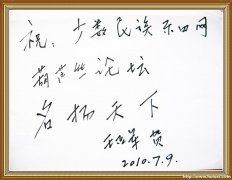 祝：少数民族乐田网
葫芦丝论坛
名扬天下
贺
2010.7.9.